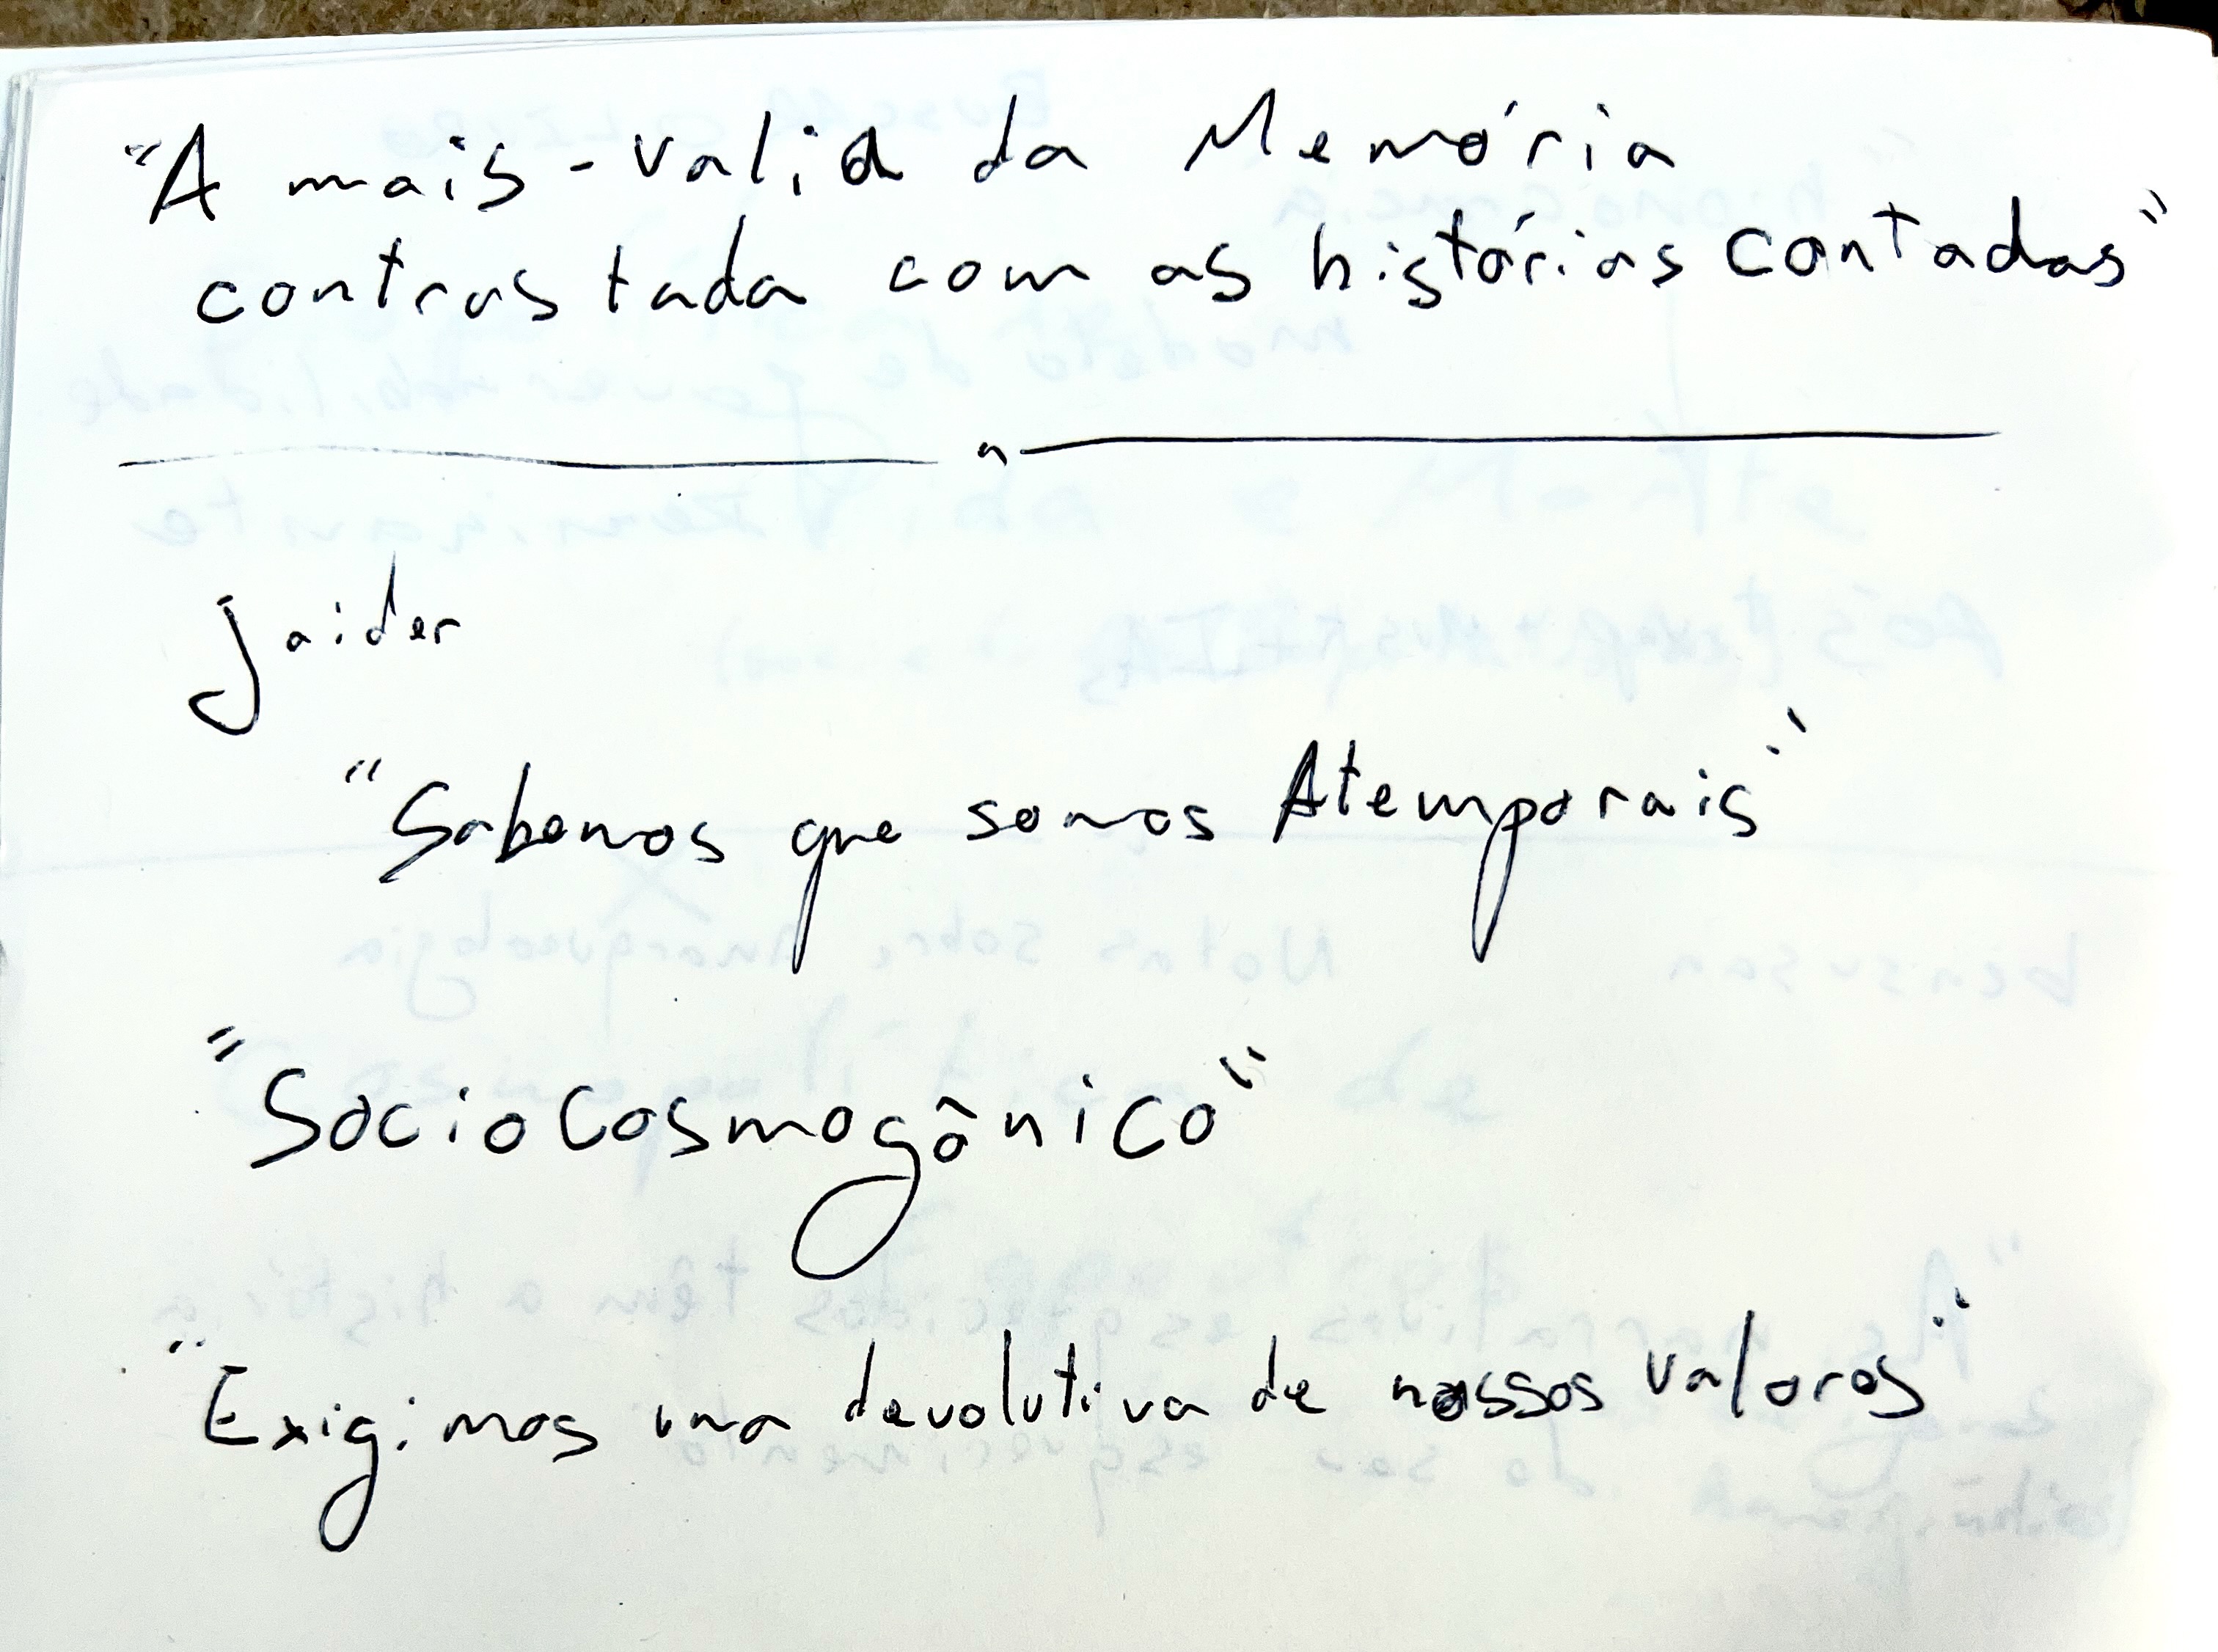 "A mais-valia da Memória
contrastada com as histórias contadas"
Jaider
"Sabemos que somos Atemporais"
"SocioCosmogônico"
"Exigimos uma devolutiva de nossos valores"